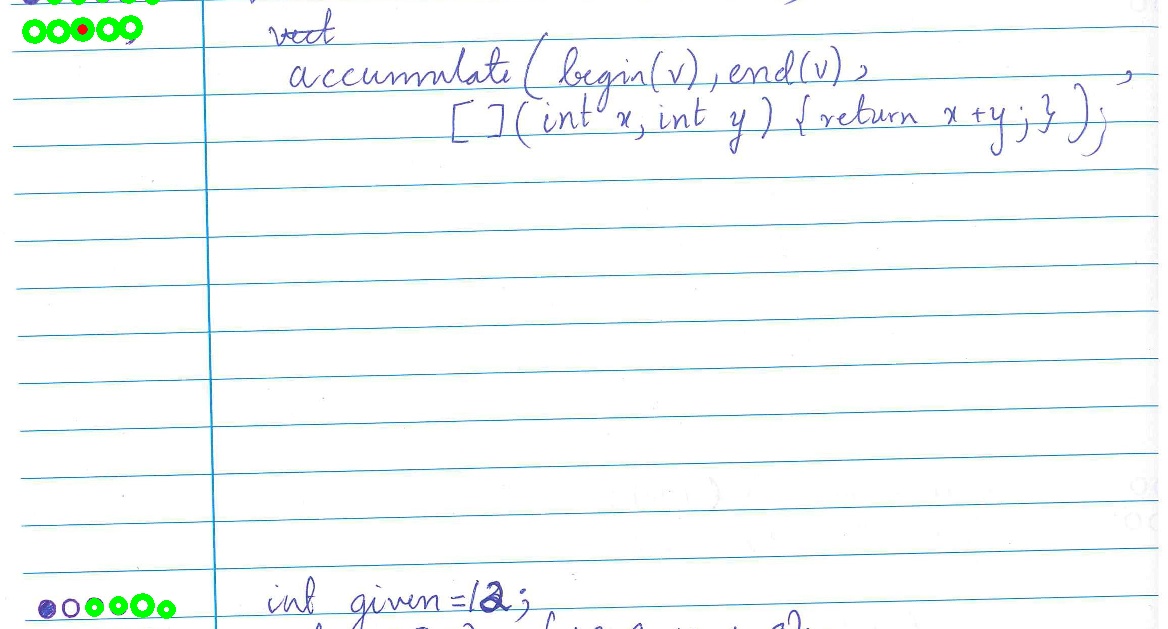 accumulate(begin(v), end(v),
[](int x, int y) {return x+y;});
int given=12;